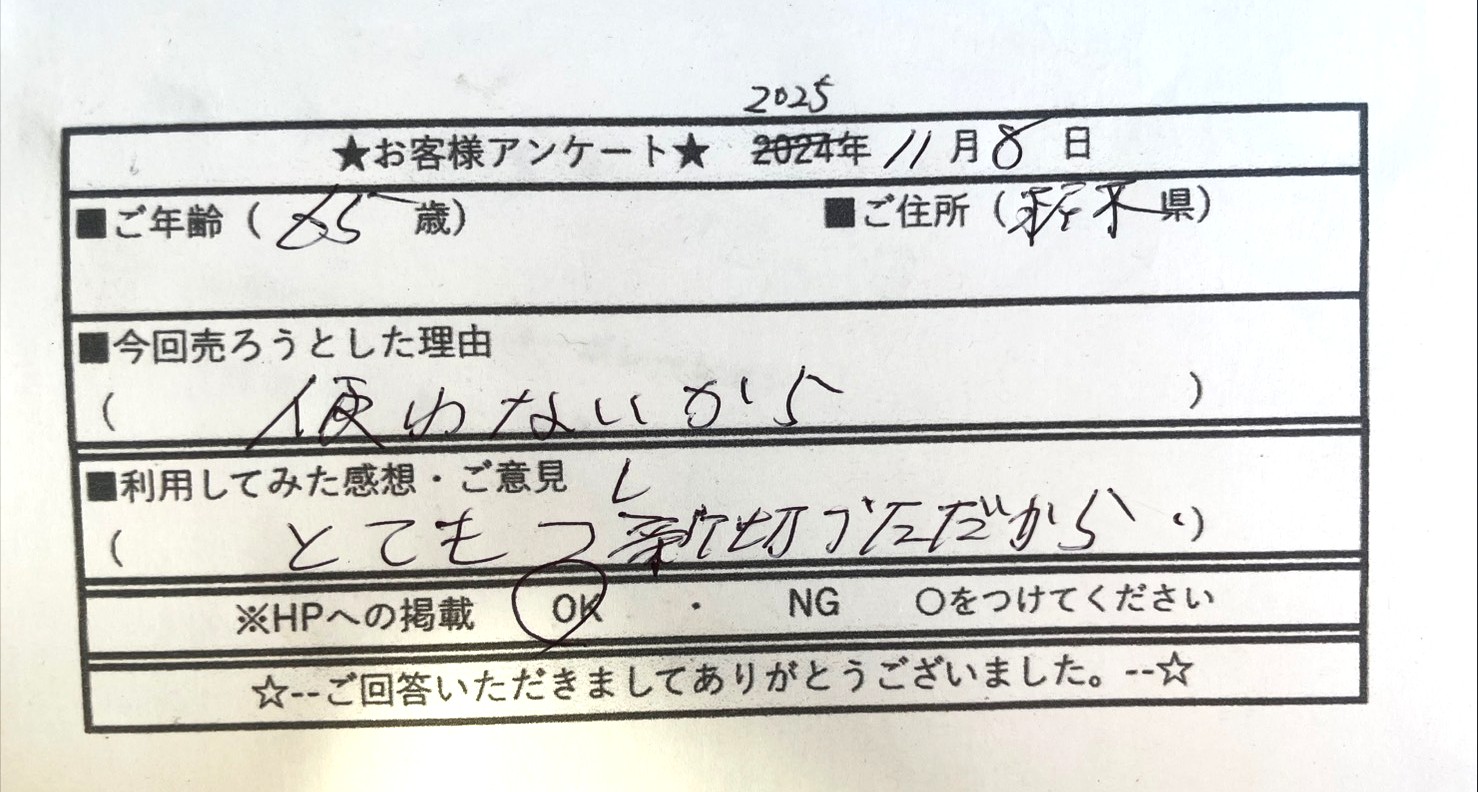 2025
★お客様アンケート★ 2024年 11月 8日
■ご年齢（ 85 歳） ■ご住所（栃木県）
■今回売ろうとした理由
（ 使わないから ）
■利用してみた感想・ご意見
（ とても 親切 だから ）
※HPへの掲載 OK ・ NG 〇をつけてください
☆--ご回答いただきましてありがとうございました。--☆